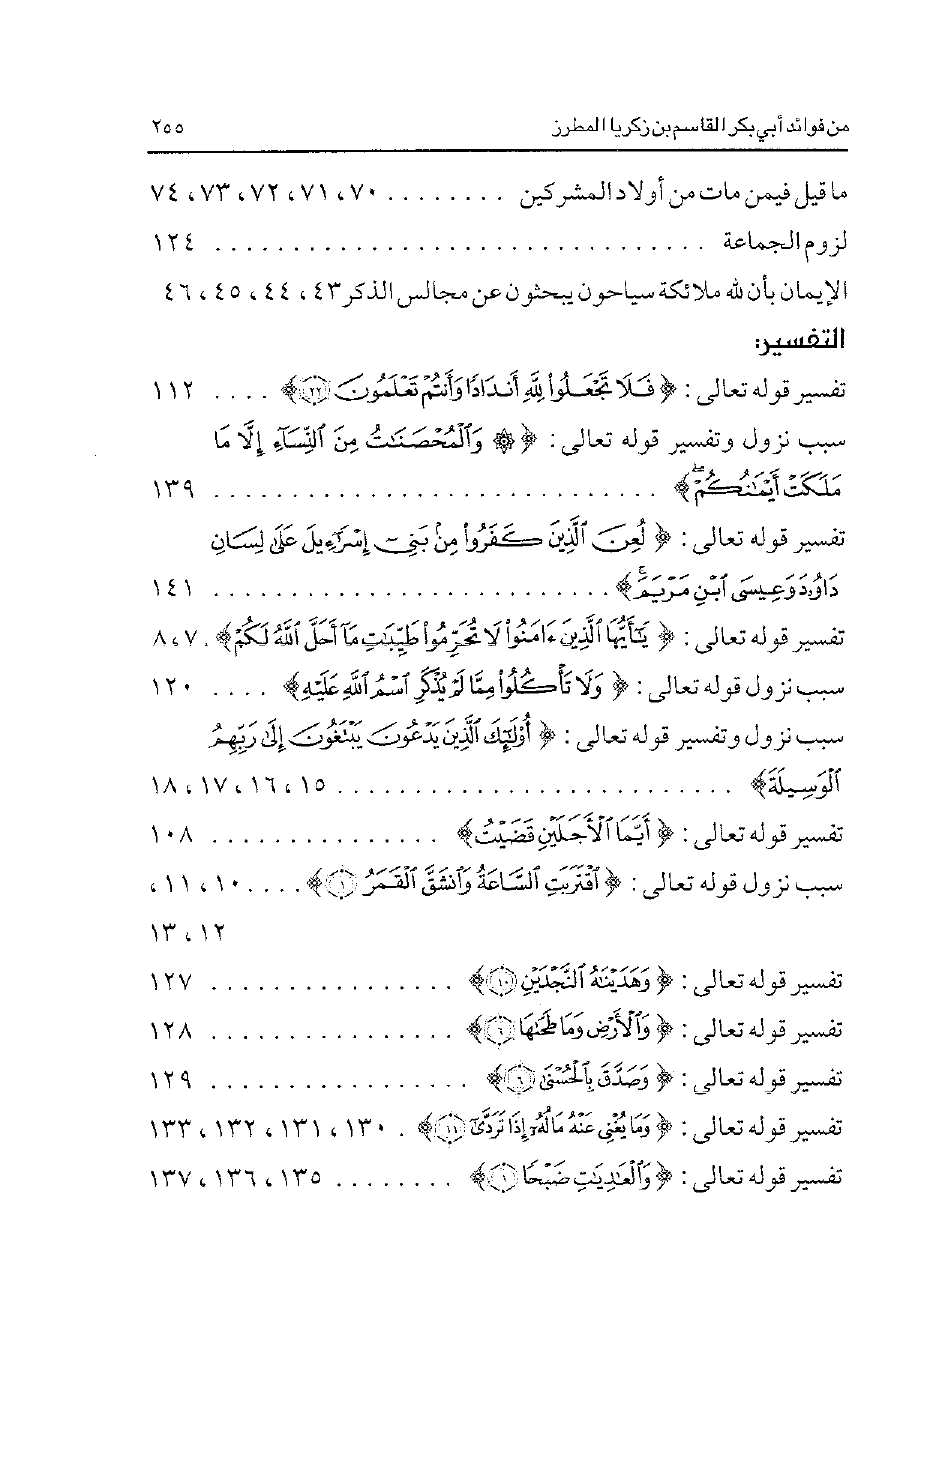 من فوائد أبي بكر القاسم بن زكريا المطرز ٢٥٥
ما قيل فيمن مات من أولاد المشركين . . . . . . . . ٧٠، ٧١، ٧٢، ٧٣، ٧٤
لزوم الجماعة . . . . . . . . . . . . . . . . . . . . . . . . . . . . . . . . ١٢٤
الإيمان بأن لله ملائكة سياحون يبحثون عن مجالس الذكر ٤٣، ٤٤، ٤٥، ٤٦
التفسير:
تفسير قوله تعالى: ﴿فَلَا تَجْعَلُوا۟ لِلَّهِ أَندَادًا وَأَنتُمْ تَعْلَمُونَ ٢٢﴾ . . . . ١١٢
سبب نزول وتفسير قوله تعالى: ﴿۞ وَٱلْمُحْصَنَٰتُ مِنَ ٱلنِّسَآءِ إِلَّا مَا
مَلَكَتْ أَيْمَٰنُكُمْ ۖ﴾ . . . . . . . . . . . . . . . . . . . . . . . . . . . . . ١٣٩
تفسير قوله تعالى: ﴿لُعِنَ ٱلَّذِينَ كَفَرُوا۟ مِنۢ بَنِىٓ إِسْرَٰٓءِيلَ عَلَىٰ لِسَانِ
دَاوُۥدَ وَعِيسَى ٱبْنِ مَرْيَمَ ۚ﴾ . . . . . . . . . . . . . . . . . . . . . . . . . . ١٤١
تفسير قوله تعالى: ﴿يَٰٓأَيُّهَا ٱلَّذِينَ ءَامَنُوا۟ لَا تُحَرِّمُوا۟ طَيِّبَٰتِ مَآ أَحَلَّ ٱللَّهُ لَكُمْ﴾ . ٧، ٨
سبب نزول قوله تعالى: ﴿وَلَا تَأْكُلُوا۟ مِمَّا لَمْ يُذْكَرِ ٱسْمُ ٱللَّهِ عَلَيْهِ﴾ . . . . ١٢٠
سبب نزول وتفسير قوله تعالى: ﴿أُو۟لَٰٓئِكَ ٱلَّذِينَ يَدْعُونَ يَبْتَغُونَ إِلَىٰ رَبِّهِمُ
ٱلْوَسِيلَةَ﴾ . . . . . . . . . . . . . . . . . . . . . . . . . . ١٥، ١٦، ١٧، ١٨
تفسير قوله تعالى: ﴿أَيَّمَا ٱلْأَجَلَيْنِ قَضَيْتُ﴾ . . . . . . . . . . . . . . . ١٠٨
سبب نزول قوله تعالى: ﴿ٱقْتَرَبَتِ ٱلسَّاعَةُ وَٱنشَقَّ ٱلْقَمَرُ ١﴾ . . . . ١٠، ١١،
١٢، ١٣
تفسير قوله تعالى: ﴿وَهَدَيْنَٰهُ ٱلنَّجْدَيْنِ ١٠﴾ . . . . . . . . . . . . . . . . ١٢٧
تفسير قوله تعالى: ﴿وَٱلْأَرْضِ وَمَا طَحَىٰهَا ٦﴾ . . . . . . . . . . . . . . . . ١٢٨
تفسير قوله تعالى: ﴿وَصَدَّقَ بِٱلْحُسْنَىٰ ٦﴾ . . . . . . . . . . . . . . . . . ١٢٩
تفسير قوله تعالى: ﴿وَمَا يُغْنِى عَنْهُ مَالُهُۥٓ إِذَا تَرَدَّىٰٓ ١١﴾ . ١٣٠، ١٣١، ١٣٢، ١٣٣
تفسير قوله تعالى: ﴿وَٱلْعَٰدِيَٰتِ ضَبْحًا ١﴾ . . . . . . . . ١٣٥، ١٣٦، ١٣٧